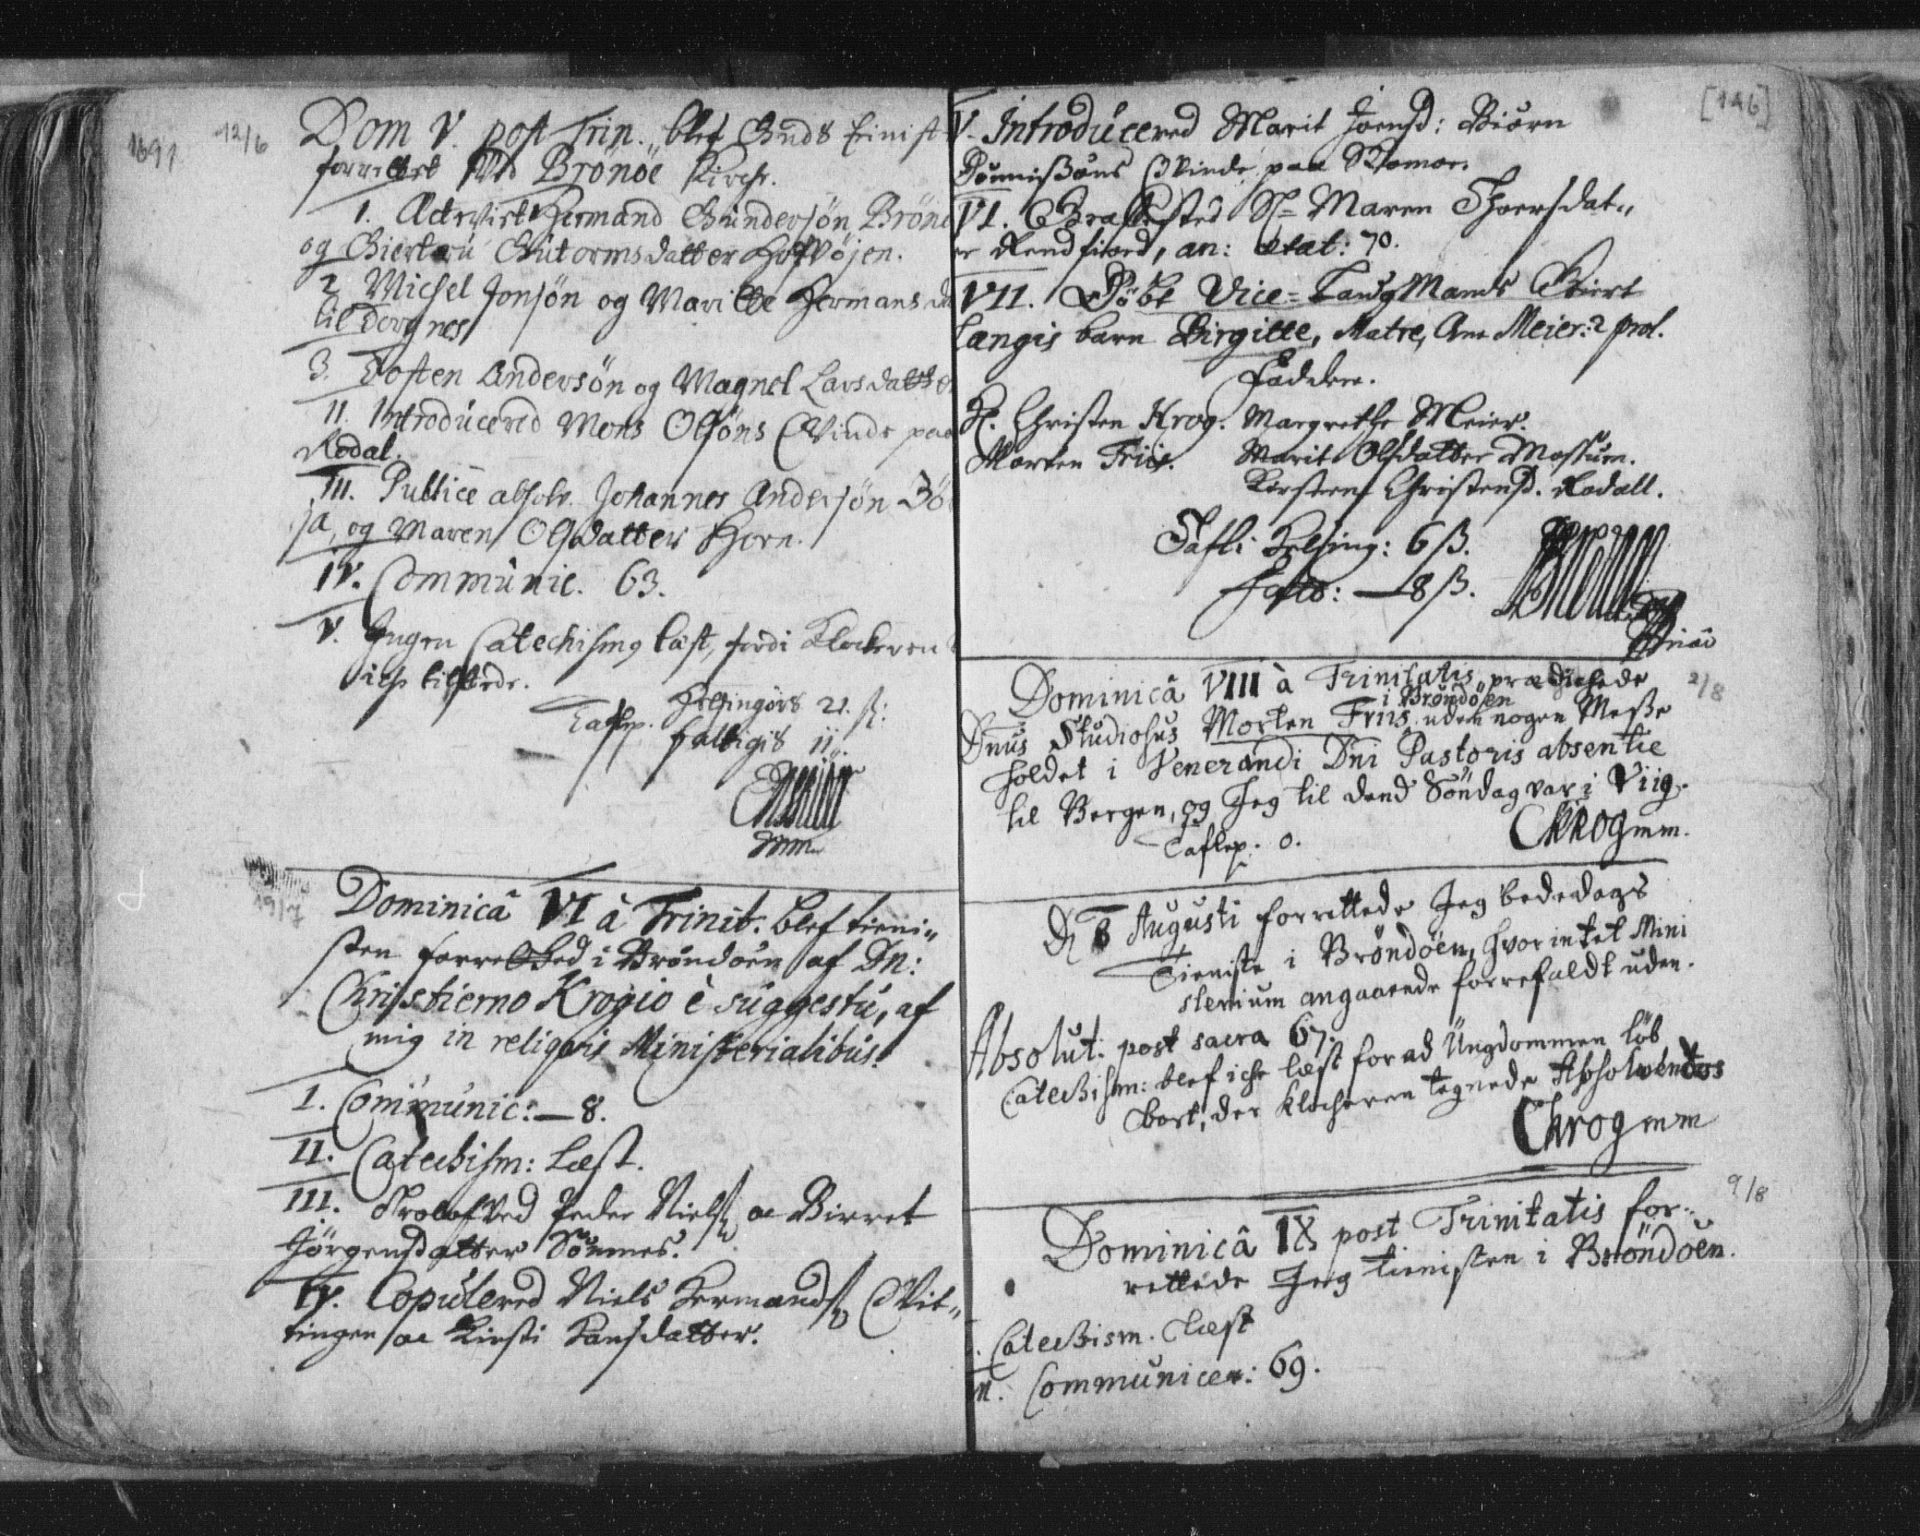 1691
12/6
Dom V. post Trin. blef Guds tienist
forrettet ved Brönöe Kirche.
1. Hermand Gundersön Brönö
og Giertru Gutormsdatter
2. Michel Jonsön og Maritte Hermans
til Torgnes
3. Tosten Andersön og Magnel Larsdatter
II. Introducered Mons Olsöns Qvinde paa
Rodal.
III. Publice absolv. Johannes Andersön Bö
ja, og Maren Olsdatter Horn.
IV. Communic. 63.
V. Ingen Catechismg læst, fordi Klockeren
iche tilstede.
Taflep. Helsingörs 21. ß:
fattigis 11.
mm
19/7
Dominicâ VI à Trinit. blef tieni„
sten forretted i Bröndöen af Dn:
Christierno Krogio è suggestú, af
mig in reliqvis Ministerialibus.
I. Communic: — 8.
II. Catechism: Læst.
III. Trolofved Peder Niels oc Birret
Jörgensdatter Sömnes.
IV. Copulered Niels Hermands Qvit„
tingen oc Kirsti Hansdatter.
[146]
V. Introducered Marit Joensd: Biörn
Qvinde paa
VI. Begrafvested Sl= Maren Thoersdat„
er, an: ætat: 70.
VII. Döbt Vice=Laug Mands Giert
Langis barn Birgitte, Matre, Ane Meier: 2 prol.
Faddere.
H. Christen Krog. Margrethe Meier.
Morten Friis. Marit Olsdatter Mossum.
Kirsten Christensd. Rodall.
Tafli Helsing: 6 ß.
— 8 ß.
Dominicâ VIII à Trinitatis prædichede
2/8
i Bröndöen
Dnus Studiosus Morten Friis uden nogen Messe
holdet i Venerandi Dni Pastoris absentie
til Bergen, og Jeg til dend Söndag var i Viig.
CKrog mm.
Taflep. 0.
D 6 Augusti forrettede Jeg bededags
Tieniste i Bröndöen, hvor intet Mini
sterium angaaende forrefaldt uden.
Absolut: post sacra 67.
Catechism: blef iche læst for ad Ungdommen löb
bort, der klocheren tegnede Absolventes
CKrog mm
9/8
Dominicâ IX post Trinitatis for„
rettede Jeg tienisten i Bröndöen.
Catechism. Læst
II. Communicer: 69.